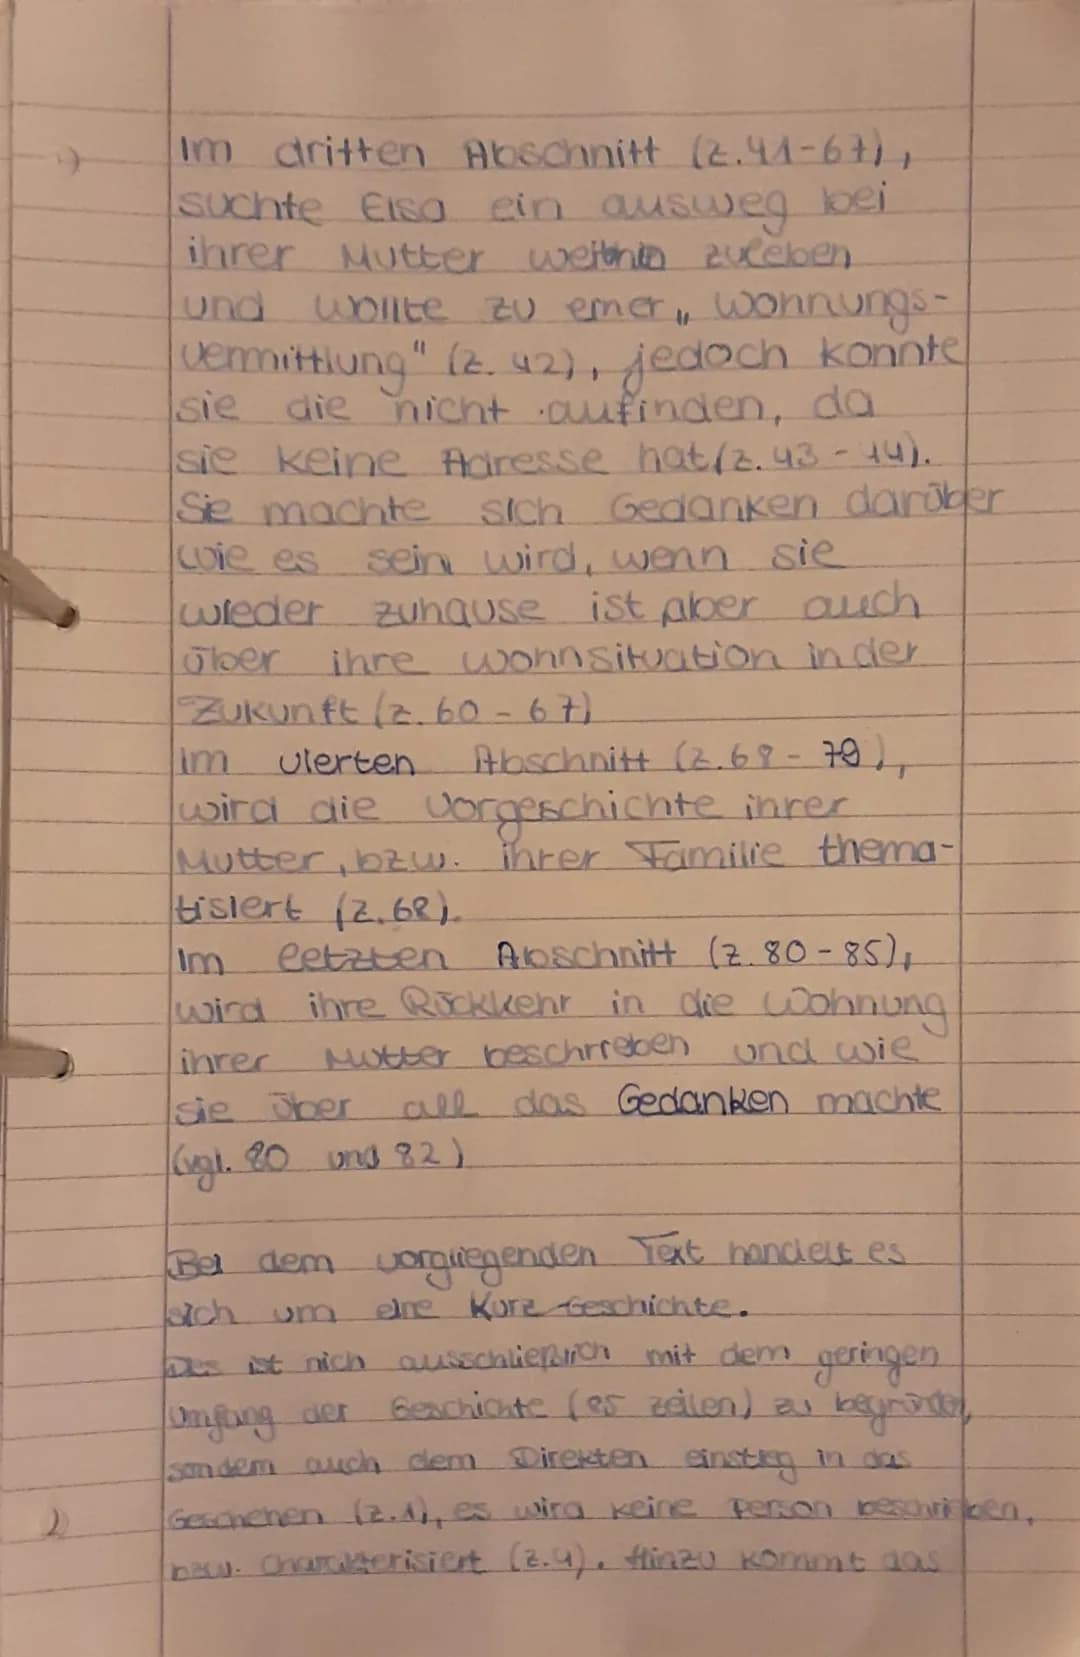 1)
Im dritten Abschnitt (Z.41-67),
suchte Elsa ein ausweg bei
ihrer Mutter weithin zuleben
und wollte zu einer „ Wohnungs-
vermittlung" (Z. 42), jedoch konnte
sie die nicht aufinden, da
sie keine Adresse hat (Z. 43 - 44).
Sie machte sich Gedanken darüber
wie es sein wird, wenn sie
wieder zuhause ist aber auch
über ihre wohnsituation in der
Zukunft (Z. 60 - 67)
Im vierten Abschnitt (Z.68 - 79),
wird die Vorgeschichte ihrer
Mutter, bzw. ihrer Familie thema-
tisiert (Z.68).
Im letzten Abschnitt (Z. 80 - 85),
wird ihre Rückkehr in die Wohnung
ihrer Mutter beschrreben und wie
sie über all das Gedanken machte
(vgl. 80 und 82)
Bei dem vorgliegenden Text handelt es
sich um eine Kurz Geschichte.
ist nich ausschließlich mit dem geringen
Umfang der Geschichte (85 zeilen) zu begründen,
sondern auch dem Direkten einstieg in das
Geschehen (Z.1), es wird keine Person beschrieben,
2)
bzw. Charakterisiert (Z.4). Hinzu kommt das